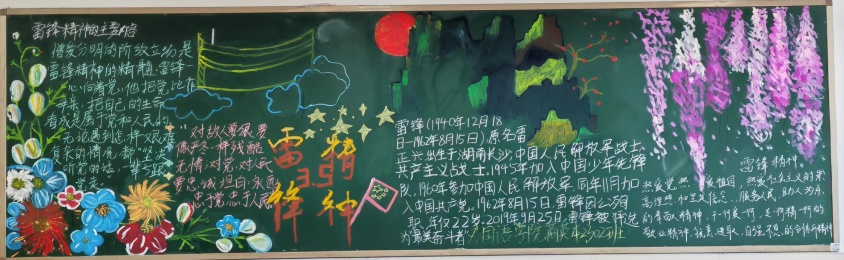 雷锋精神的主要内容
憎爱分明的阶级立场是
雷锋精神的精髓.雷锋
一心向着党,他把党比作
母亲,把自己的生命
看成是属于党和人民的
无论遇到怎样艰难
复杂的情况,都坚决
"对敌人要狠要
像严冬一样残酷
无情,对党对人民
要忠诚坦白,永远
忠于党忠于人民
雷锋
3.5
精神
雷锋(1940年12月18
日-1962年8月15日)原名雷
正兴出生于湖南长沙,中国人民解放军战士,
共产主义战士,1945年加入中国少年先锋
队,1960年参加中国人民解放军,同年11月加
入中国共产党,1962年8月15日雷锋因公殉
职,年仅22岁.2019年9月25日,雷锋被评选
为"最美奋斗者"
国语学院商英2302班
雷锋精神
热爱党、热爱祖国、热爱社会主义的崇
高理想和坚定信念,服务人民、助人为乐
的奉献精神,干一行爱一行、专一行精一行的
敬业精神,锐意进取、自强不息的创新精神